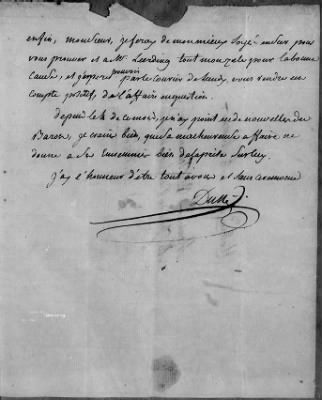 enfin, monsieur, je feray de mon mieux pour
vous prouver et a Mr. tout mon zele pour la bonne
Cause, et j'espere pouvoir par le Courier de vous rendre un
Compte positif, de l'affaire en question.
depuis le de ce mois, je n'ay point eu de nouvelles du
Baron, je crains bien, que sa malheureuse affaire ne
donne a ses Ennemis bien
J'ay l'honneur d'être tout a vous et sans ceremonie